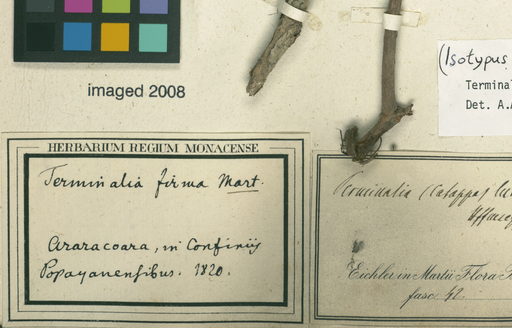 imaged 2008
(Isotypus
Terminal
Det. A.
HERBARIUM REGIUM MONACENSE
Terminalia firma Mart.
Araracoara, in Confiniis
Popayanensibus. 1820.
Terminalia (Catappa)
Eichler in Martii Flora
fasc. 42.